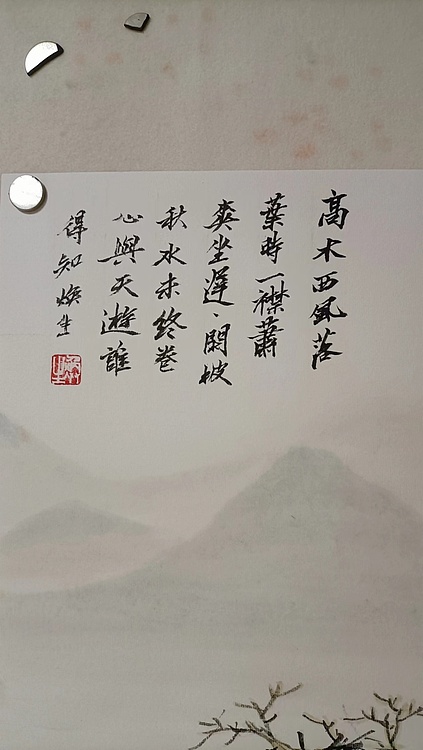 高木西風落
葉時一襟蕭
爽坐遲〻閒披
秋水未終卷
心與天遊誰
得知 煥生